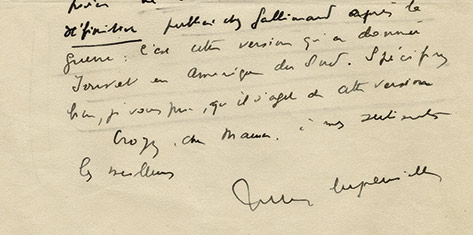 pièce de
définitive publiée chez Gallimard après la
guerre : c'est cette version qu'a donnée
Jouvet en Amérique du Sud. Spécifiez
bien, je vous prie, qu'il s'agit de cette version
Croyez, cher Mama, à mes sentiments
les meilleurs
Jules Supervielle